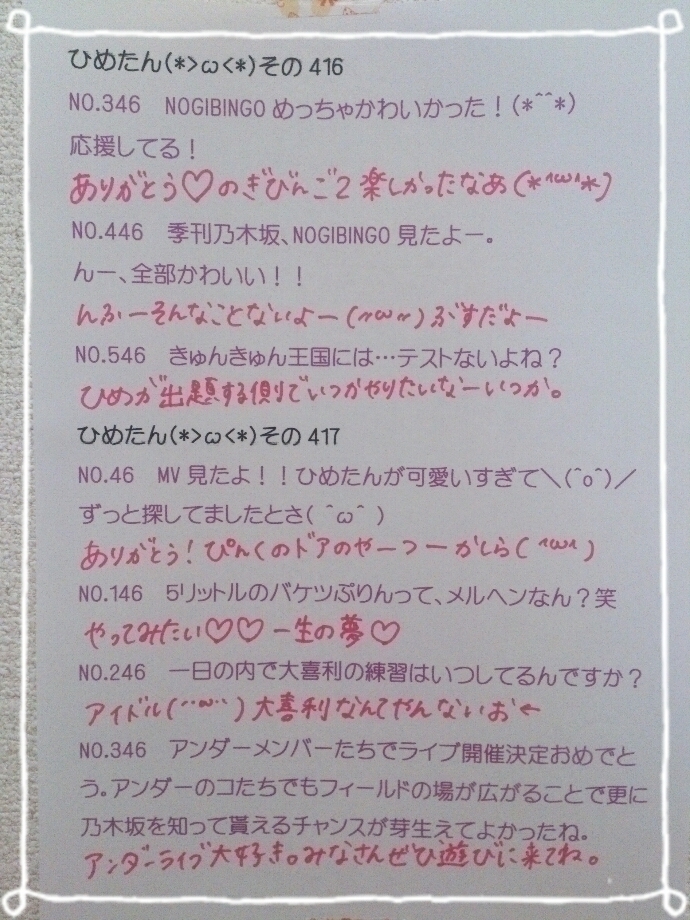 ひめたん(*>ω<*)その416
NO.346　NOGIBINGOめっちゃかわいかった！(*^^*)
応援してる！
ありがとう♡のぎびんご2 楽しかったなあ(*^ω^*)
NO.446　季刊乃木坂、NOGIBINGO見たよー。
んー、全部かわいい！！
んふーそんなことないよー(〃ω〃)ぶすだよー
NO.546　きゅんきゅん王国には…テストないよね？
ひめが出題する側でいつかやりたいなーいつか。
ひめたん(*>ω<*)その417
NO.46　MV見たよ！！ひめたんが可愛いすぎて＼(^o^)／
ずっと探してましたとさ( ^ω^ )
ありがとう！ぴんくのドアのやーつーかしら( ^ω^ )
NO.146　5リットルのバケツぷりんって、メルヘンなん？笑
やってみたい♡♡一生の夢♡
NO.246　一日の内で大喜利の練習はいつしてるんですか？
アイドル(¨ω¨)大喜利なんてやんないお←
NO.346　アンダーメンバーたちでライブ開催決定おめでと
う。アンダーのコたちでもフィールドの場が広がることで更に
乃木坂を知って貰えるチャンスが芽生えてよかったね。
アンダーライブ大好き。みなさんぜひ遊びに来てね。